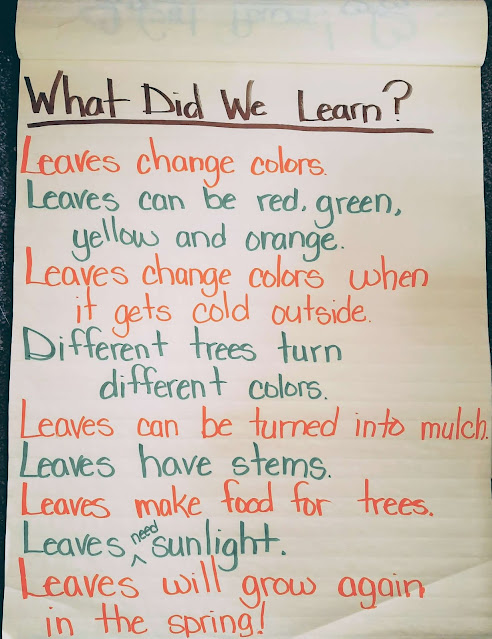 What Did We Learn?
Leaves change colors.
Leaves can be red, green,
yellow and orange.
Leaves change colors when
it gets cold outside.
Different trees turn
different colors.
Leaves can be turned into mulch.
Leaves have stems.
Leaves make food for trees.
Leaves need sunlight.
Leaves will grow again
in the spring!